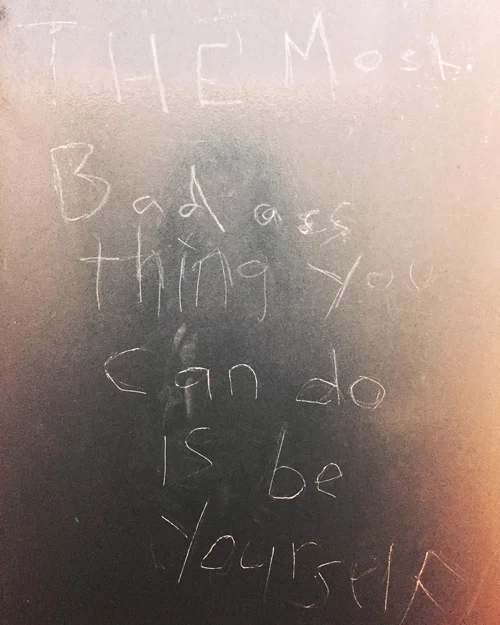 THE Most
Bad ass
thing you
can do
is be
yourself